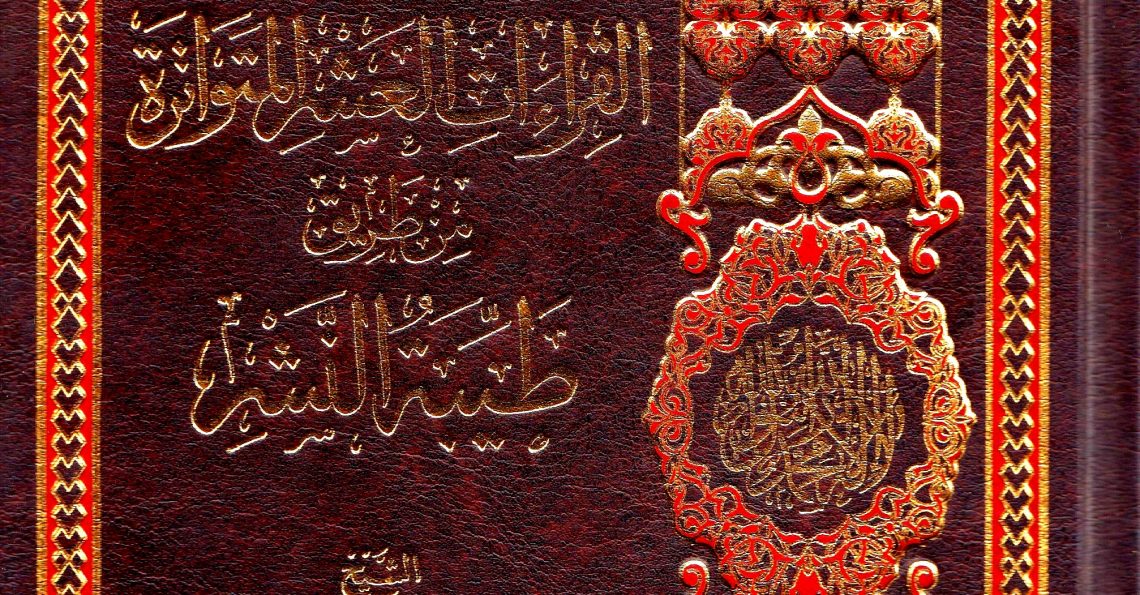 القِرَاءَاتُ العَشْرُ المُتَوَاتِرَةُ
مِنْ طَرِيقِ
طَيِّبَةِ النَّشْرِ
الشَّيْخ